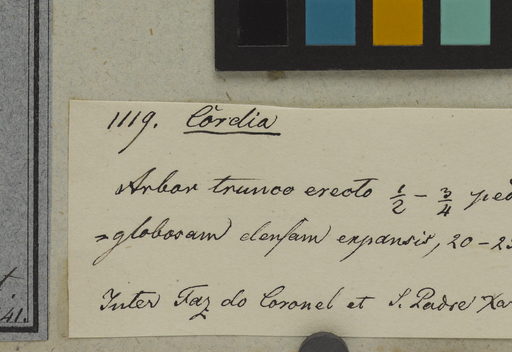 1119. Cordia
Arbor trunco erecto 1/2 - 3/4
=globosam densam expansis, 20 - 25
Inter Faz do Coronel et S. Padre
41.